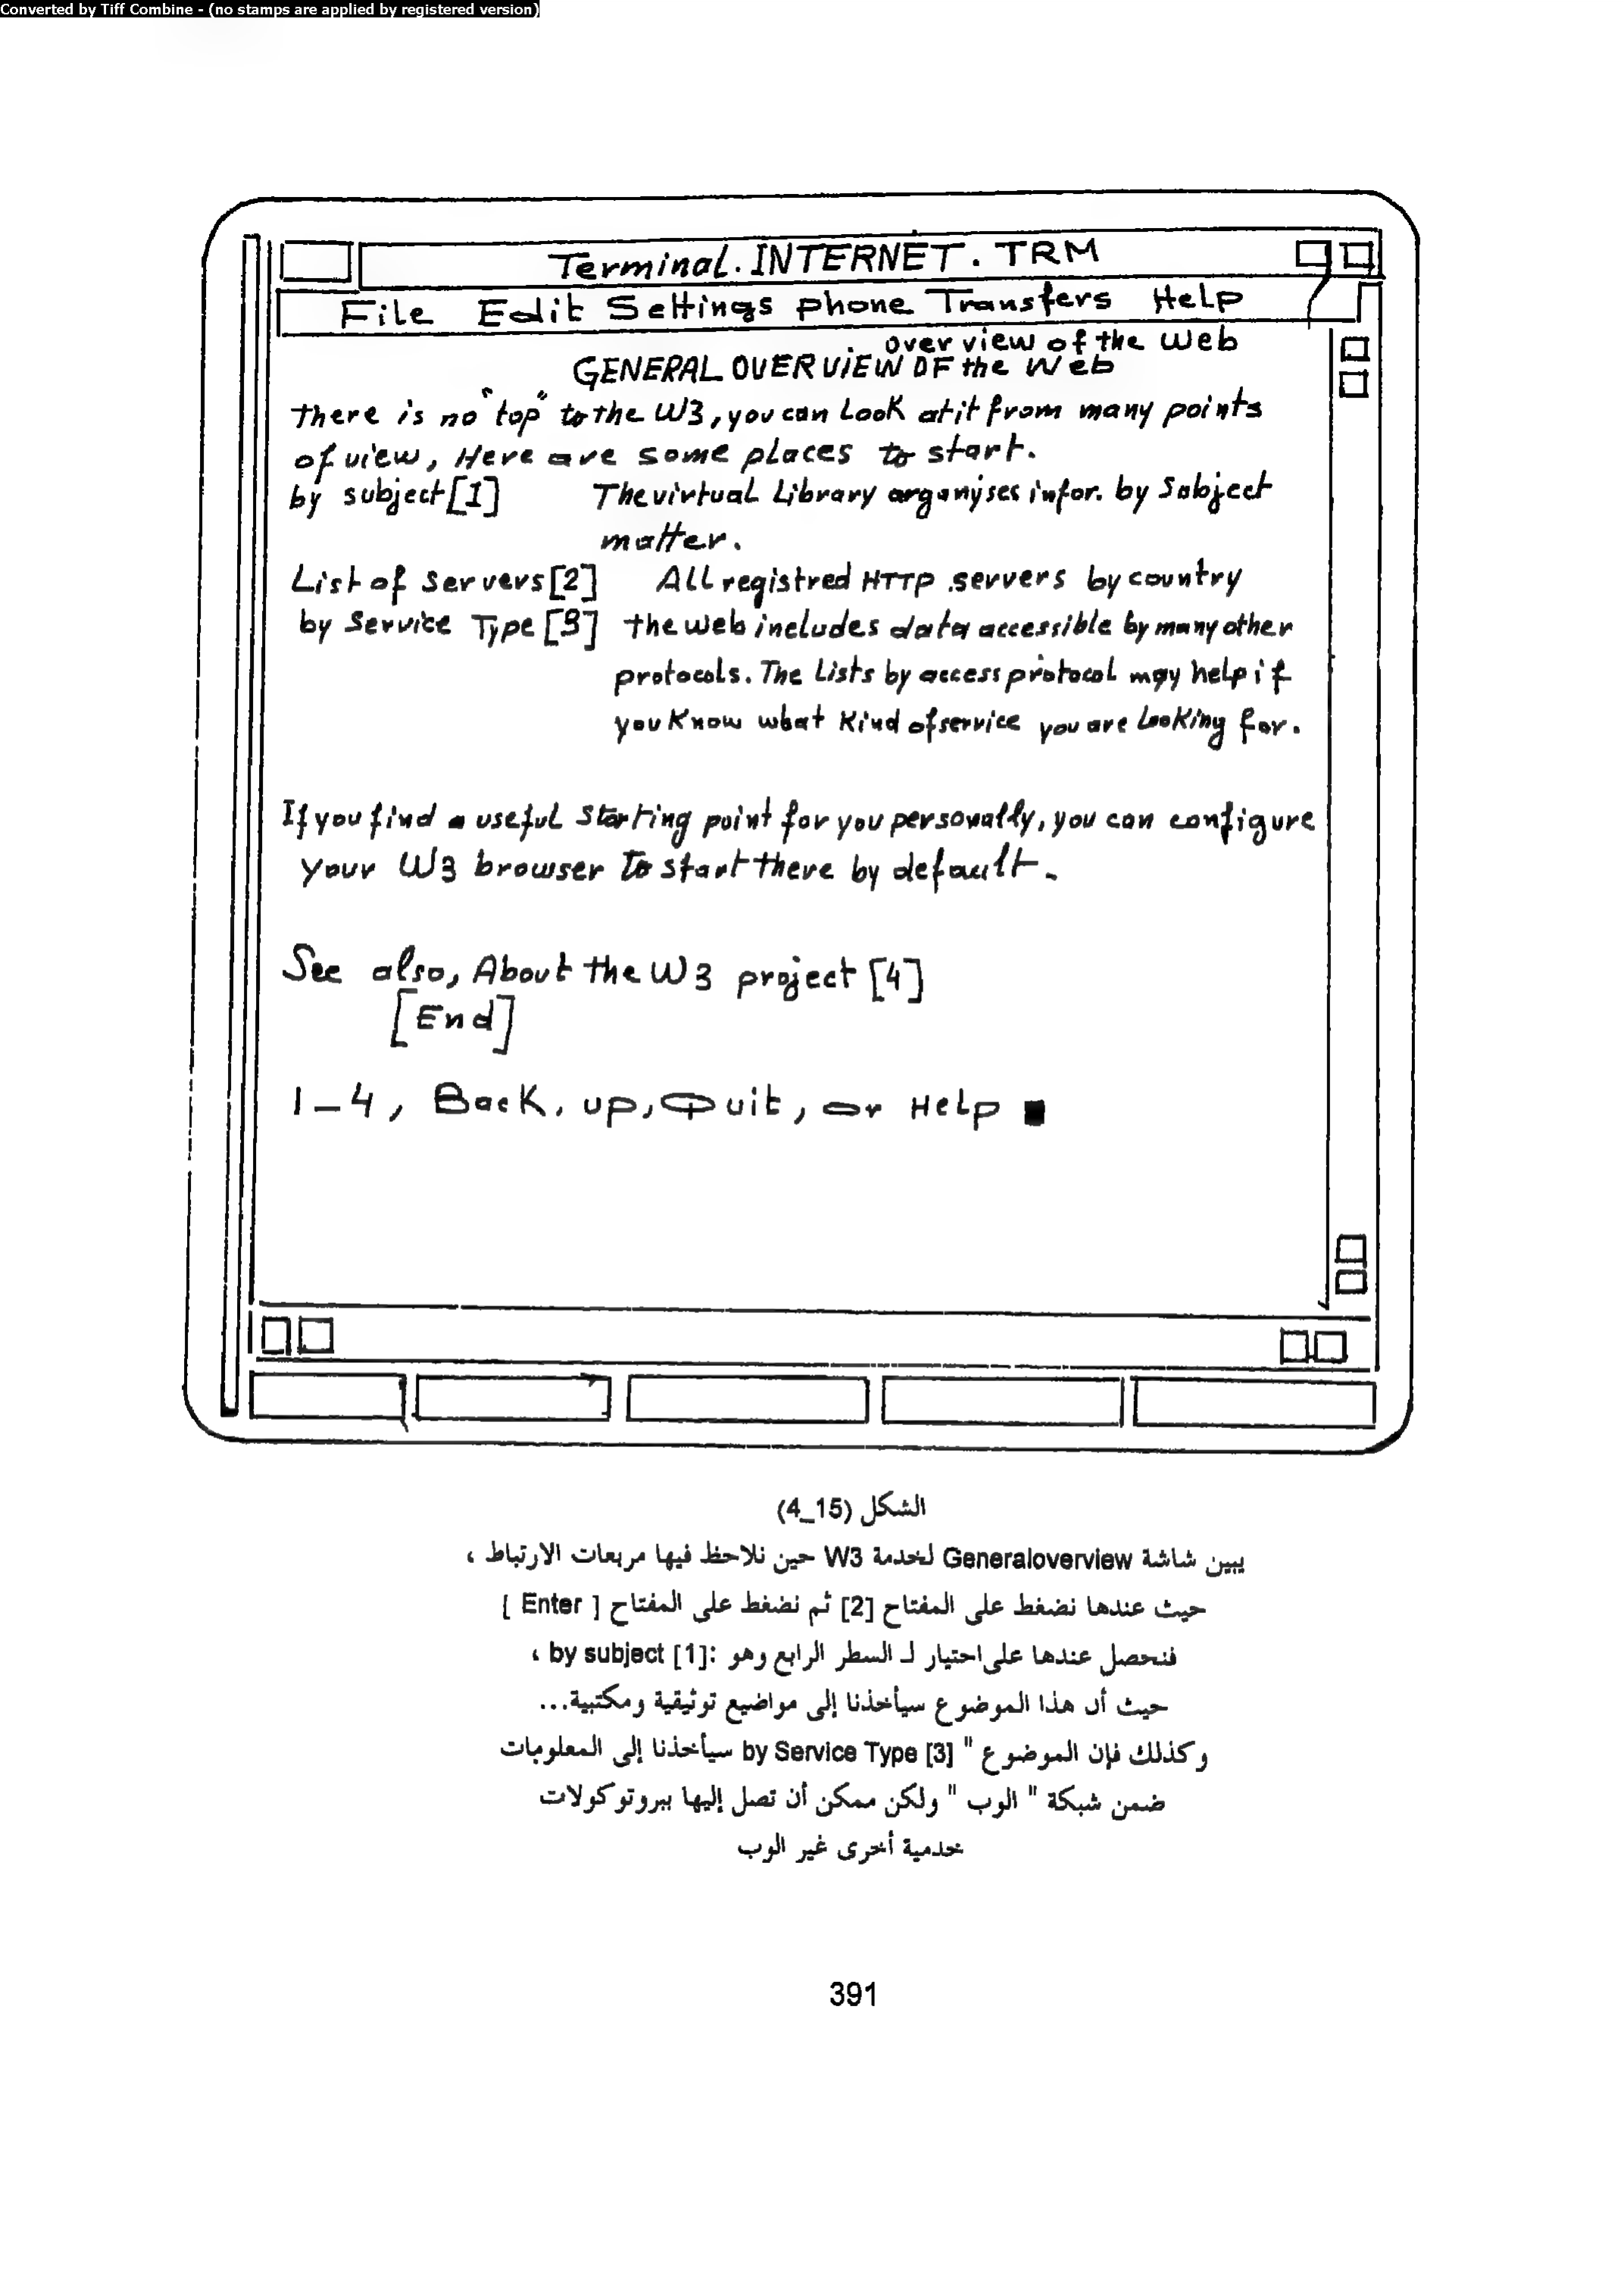 Converted by Tiff Combine - (no stamps are applied by registered version)
Terminal.INTERNET.TRM
File Edit Settings phone Transfers Help
over view of the Web
GENERAL OVER ViEW OF the Web
there is no "top" to the W3, you can Look at it from many points
of view, Here are some places to start.
by subject [1] The virtual Library arganyses infor. by Sabject
matter.
List of servers [2] All registred HTTP servers by country
by Service Type [3] the web includes data accessible by many other
protocols. The Lists by access protocol may help if
you Know what Kind of service you are LooKing for.
If you find a useful Starting point for you personally, you can configure
your W3 browser To start there by default.
See also, About the W3 project [4]
[End]
1_4, Back, up, Quit, or Help
الشكل (15_4)
يبين شاشة Generaloverview لخدمة W3 حين نلاحظ فيها مربعات الارتباط ،
حيث عندها نضغط على المفتاح [2] ثم نضغط على المفتاح [ Enter ]
فنحصل عندها على احتيار لـ السطر الرابع وهو :[1] by subject ،
حيث أن هذا الموضوع سيأخذنا إلى مواضيع توثيقية ومكتبية...
وكذلك فإن الموضوع " by Service Type [3] سيأخذنا إلى المعلومات
ضمن شبكة " الوب " ولكن ممكن أن تصل إليها ببروتوكولات
خدمية أخرى غير الوب
391